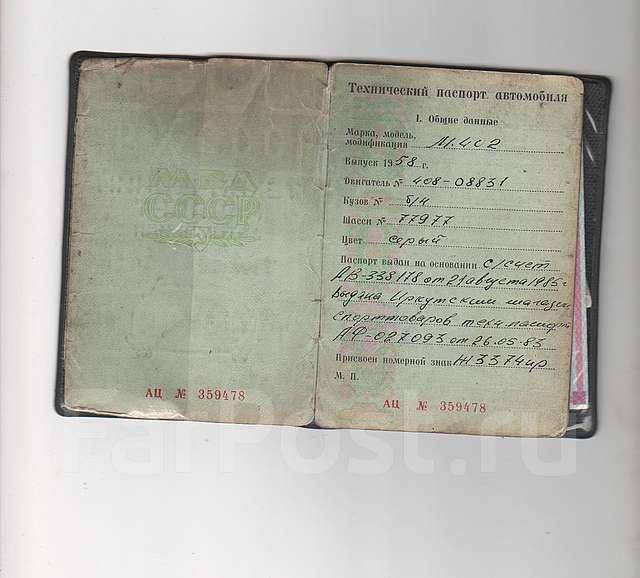 СССР
АЦ № 359478
Технический паспорт автомобиля
1. Общие данные
Марка, модель,
модификация М.402
Выпуск 1958 г.
Двигатель № 408-08831
Кузов № б/н
Шасси № 77977
Цвет серый
Паспорт выдан на основании с/счет
АВ-338178 от 21 августа 1985г
выдана Иркутским магазин
спорттоваров техн.паспорт
АФ-027093 от 26.05.83
Присвоен номерной знак Ж3374ир
М. П.
АЦ № 359478
FarPost.ru